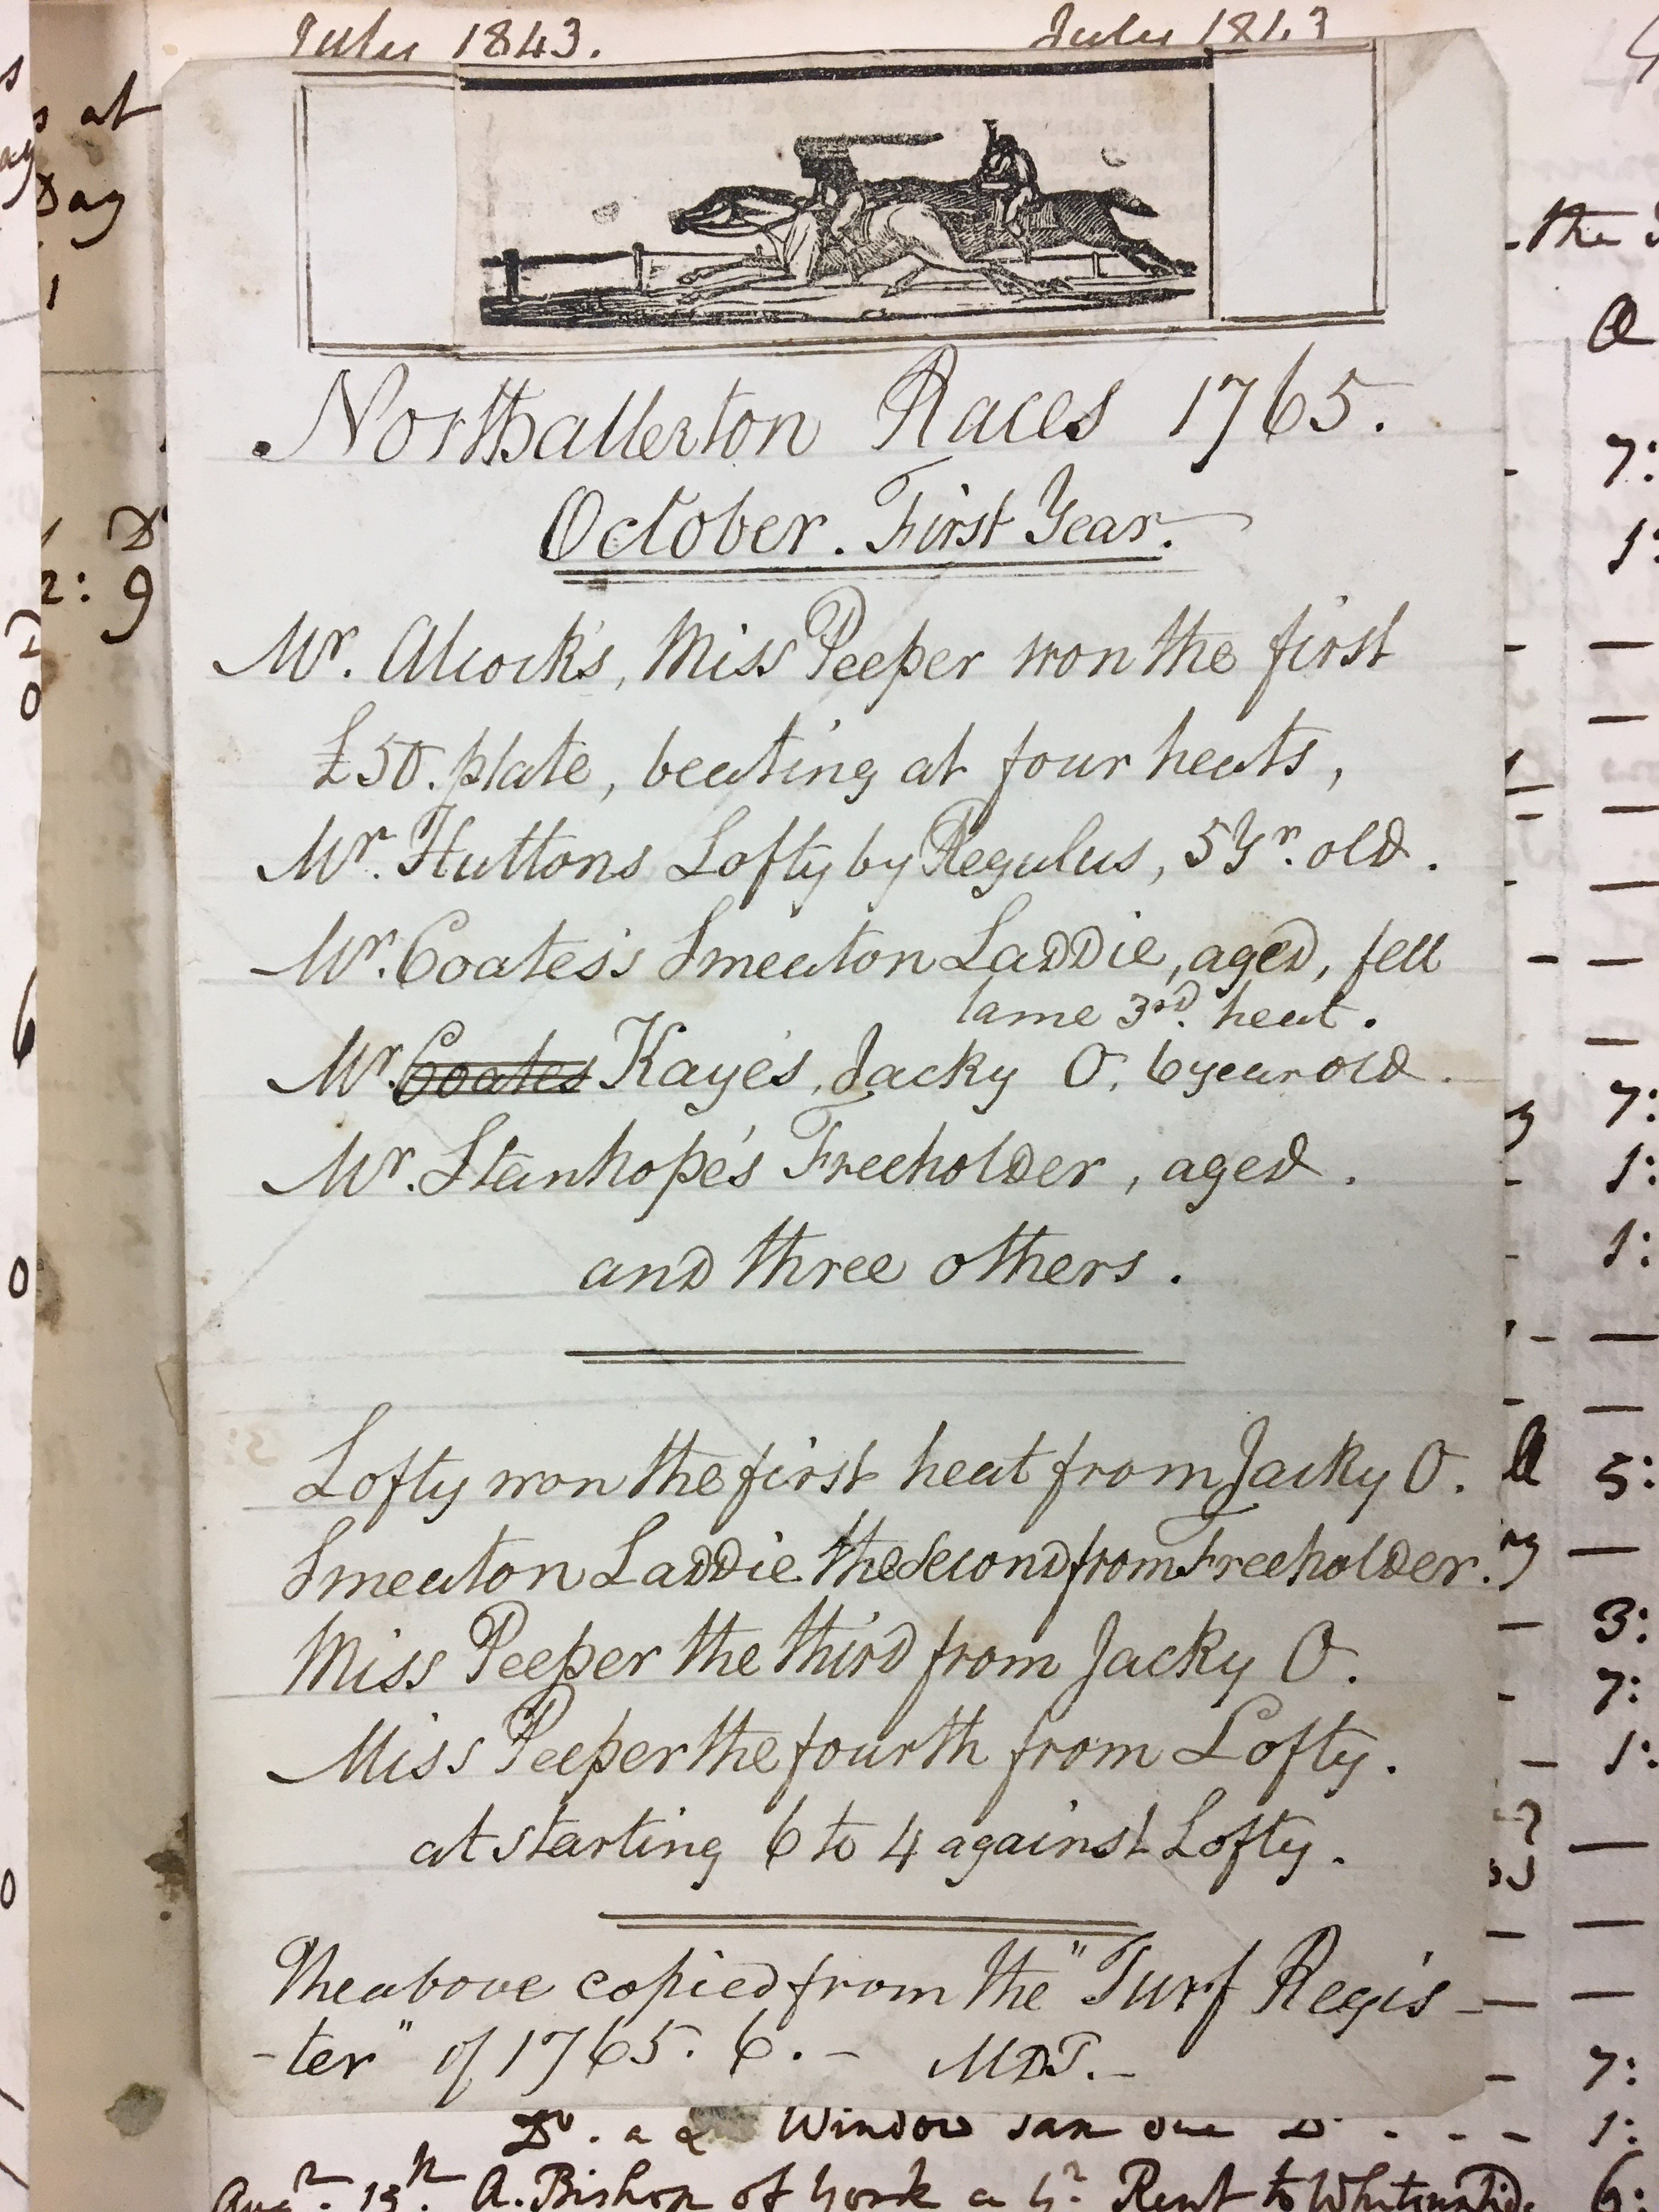 July 1843. July 1843
Northallerton Races 1765.
October. First Year.
Mr. Alcock's, Miss Peeper won the first
£50. plate, beating at four heats,
Mr. Huttons Lofty by Regulus, 5 Yr. old.
Mr. Coates's Smeaton Laddie, aged, fell
lame 3rd. heat.
Mr. Coates Kaye's, Jacky O. 6 year old.
Mr. Stanhope's Freeholder, aged.
and three others.
Lofty won the first heat from Jacky O.
Smeaton Laddie the Second from Freeholder.
Miss Peeper the third from Jacky O.
Miss Peeper the fourth from Lofty.
at starting 6 to 4 against Lofty.
The above copied from the "Turf Regis-
-ter" of 1765. 6. - MDT. -
Do. a Window
Augt. 13th. A. Bishop of York a Yr. Rent to
at
Day
1
D
2: 9
6
0
0
the
7:
1:
7:
1:
1:
5:
3:
7:
1:
7:
1:
6: